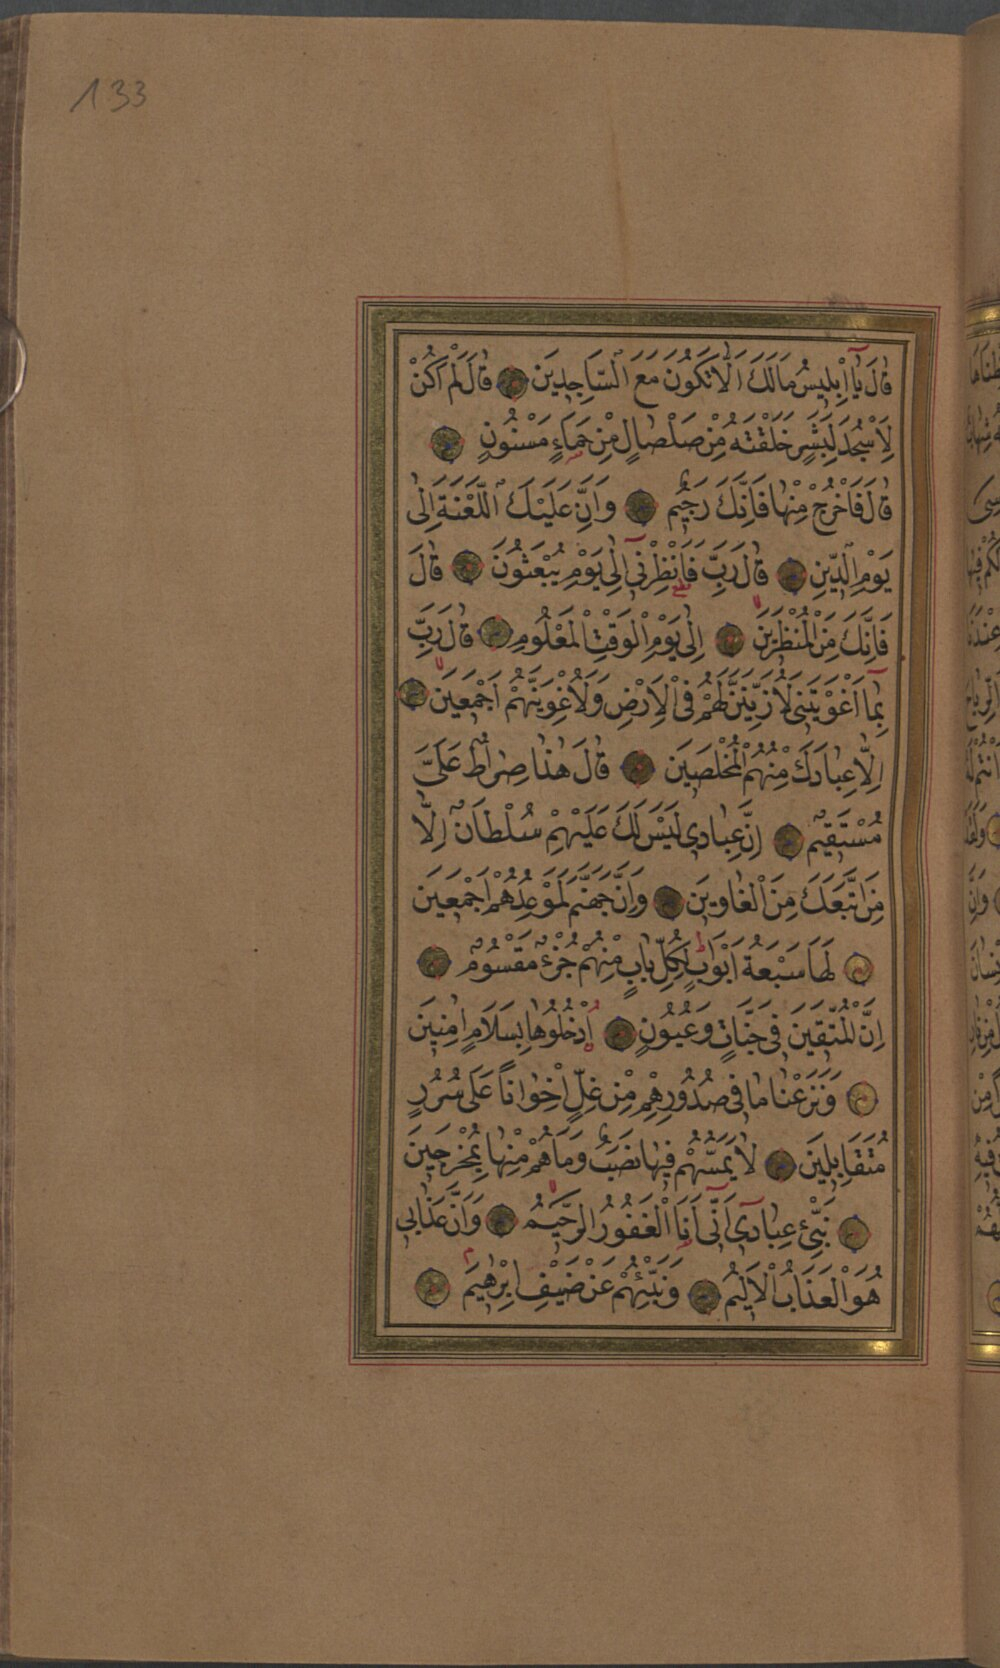 133
قَالَ يَٓا اِبْلِيسُ مَا لَكَ اَلَّا تَكُونَ مَعَ السَّاجِدِينَ قَالَ لَمْ اَكُنْ
لِاَسْجُدَ لِبَشَرٍ خَلَقْتَهُ مِنْ صَلْصَالٍ مِنْ حَمَاءٍ مَسْنُونٍ
قَالَ فَاخْرُجْ مِنْهَا فَاِنَّكَ رَجِيمٌ وَاِنَّ عَلَيْكَ اللَّعْنَةَ اِلٰى
يَوْمِ الدِّينِ قَالَ رَبِّ فَاَنْظِرْنٓى اِلٰى يَوْمِ يُبْعَثُونَ قَالَ
فَاِنَّكَ مِنَ الْمُنْظَرِينَ اِلٰى يَوْمِ الْوَقْتِ الْمَعْلُومِ قَالَ رَبِّ
بِمَٓا اَغْوَيْتَنِى لَاُزَيِّنَنَّ لَهُمْ فِى الْاَرْضِ وَلَاُغْوِيَنَّهُمْ اَجْمَعِينَ
اِلَّا عِبَادَكَ مِنْهُمُ الْمُخْلَصِينَ قَالَ هٰذَا صِرَاطٌ عَلَىَّ
مُسْتَقِيمٌ اِنَّ عِبَادِى لَيْسَ لَكَ عَلَيْهِمْ سُلْطَانٌ اِلَّا
مَنِ اتَّبَعَكَ مِنَ الْغَاوِينَ وَاِنَّ جَهَنَّمَ لَمَوْعِدُهُمْ اَجْمَعِينَ
لَهَا سَبْعَةُ اَبْوَابٍ لِكُلِّ بَابٍ مِنْهُمْ جُزْءٌ مَقْسُومٌ
اِنَّ الْمُتَّقِينَ فِى جَنَّاتٍ وَعُيُونٍ اُدْخُلُوهَا بِسَلَامٍ اٰمِنِينَ
وَنَزَعْنَا مَا فِى صُدُورِهِمْ مِنْ غِلٍّ اِخْوَانًا عَلٰى سُرُرٍ
مُتَقَابِلِينَ لَا يَمَسُّهُمْ فِيهَا نَصَبٌ وَمَا هُمْ مِنْهَا بِمُخْرَجِينَ
نَبِّئْ عِبَادِٓى اَنِّٓى اَنَا الْغَفُورُ الرَّحِيمُ وَاَنَّ عَذَابِى
هُوَ الْعَذَابُ الْاَلِيمُ وَنَبِّئْهُمْ عَنْ ضَيْفِ اِبْرٰهِيمَ